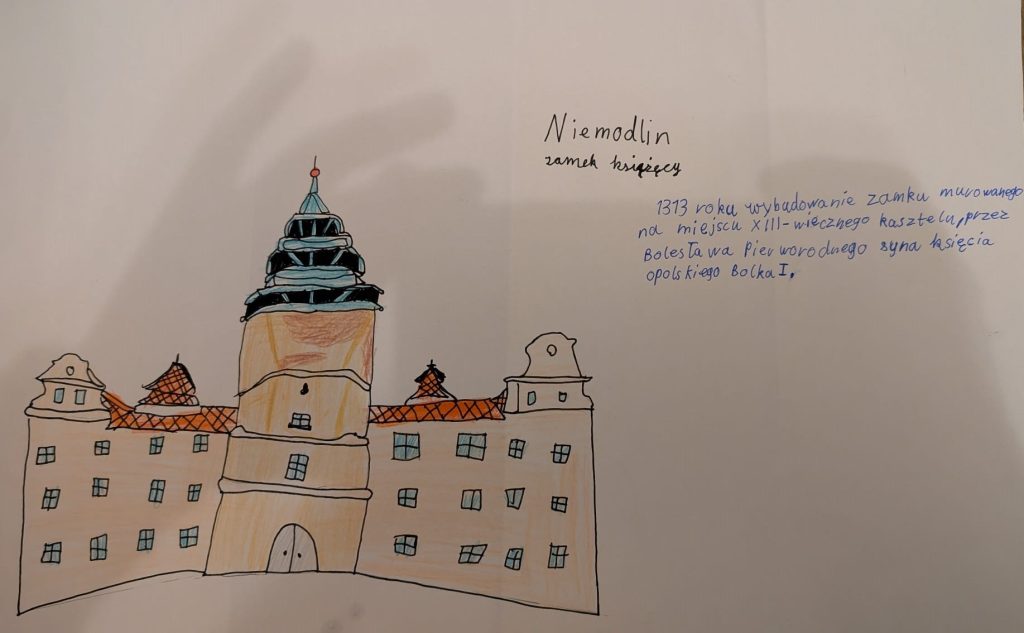 Niemodlin
zamek książęcy
1313 roku wybudowanie zamku murowanego
na miejscu XIII-wiecznego kasztelu, przez
Bolesława Pierworodnego syna księcia
opolskiego Bolka I.